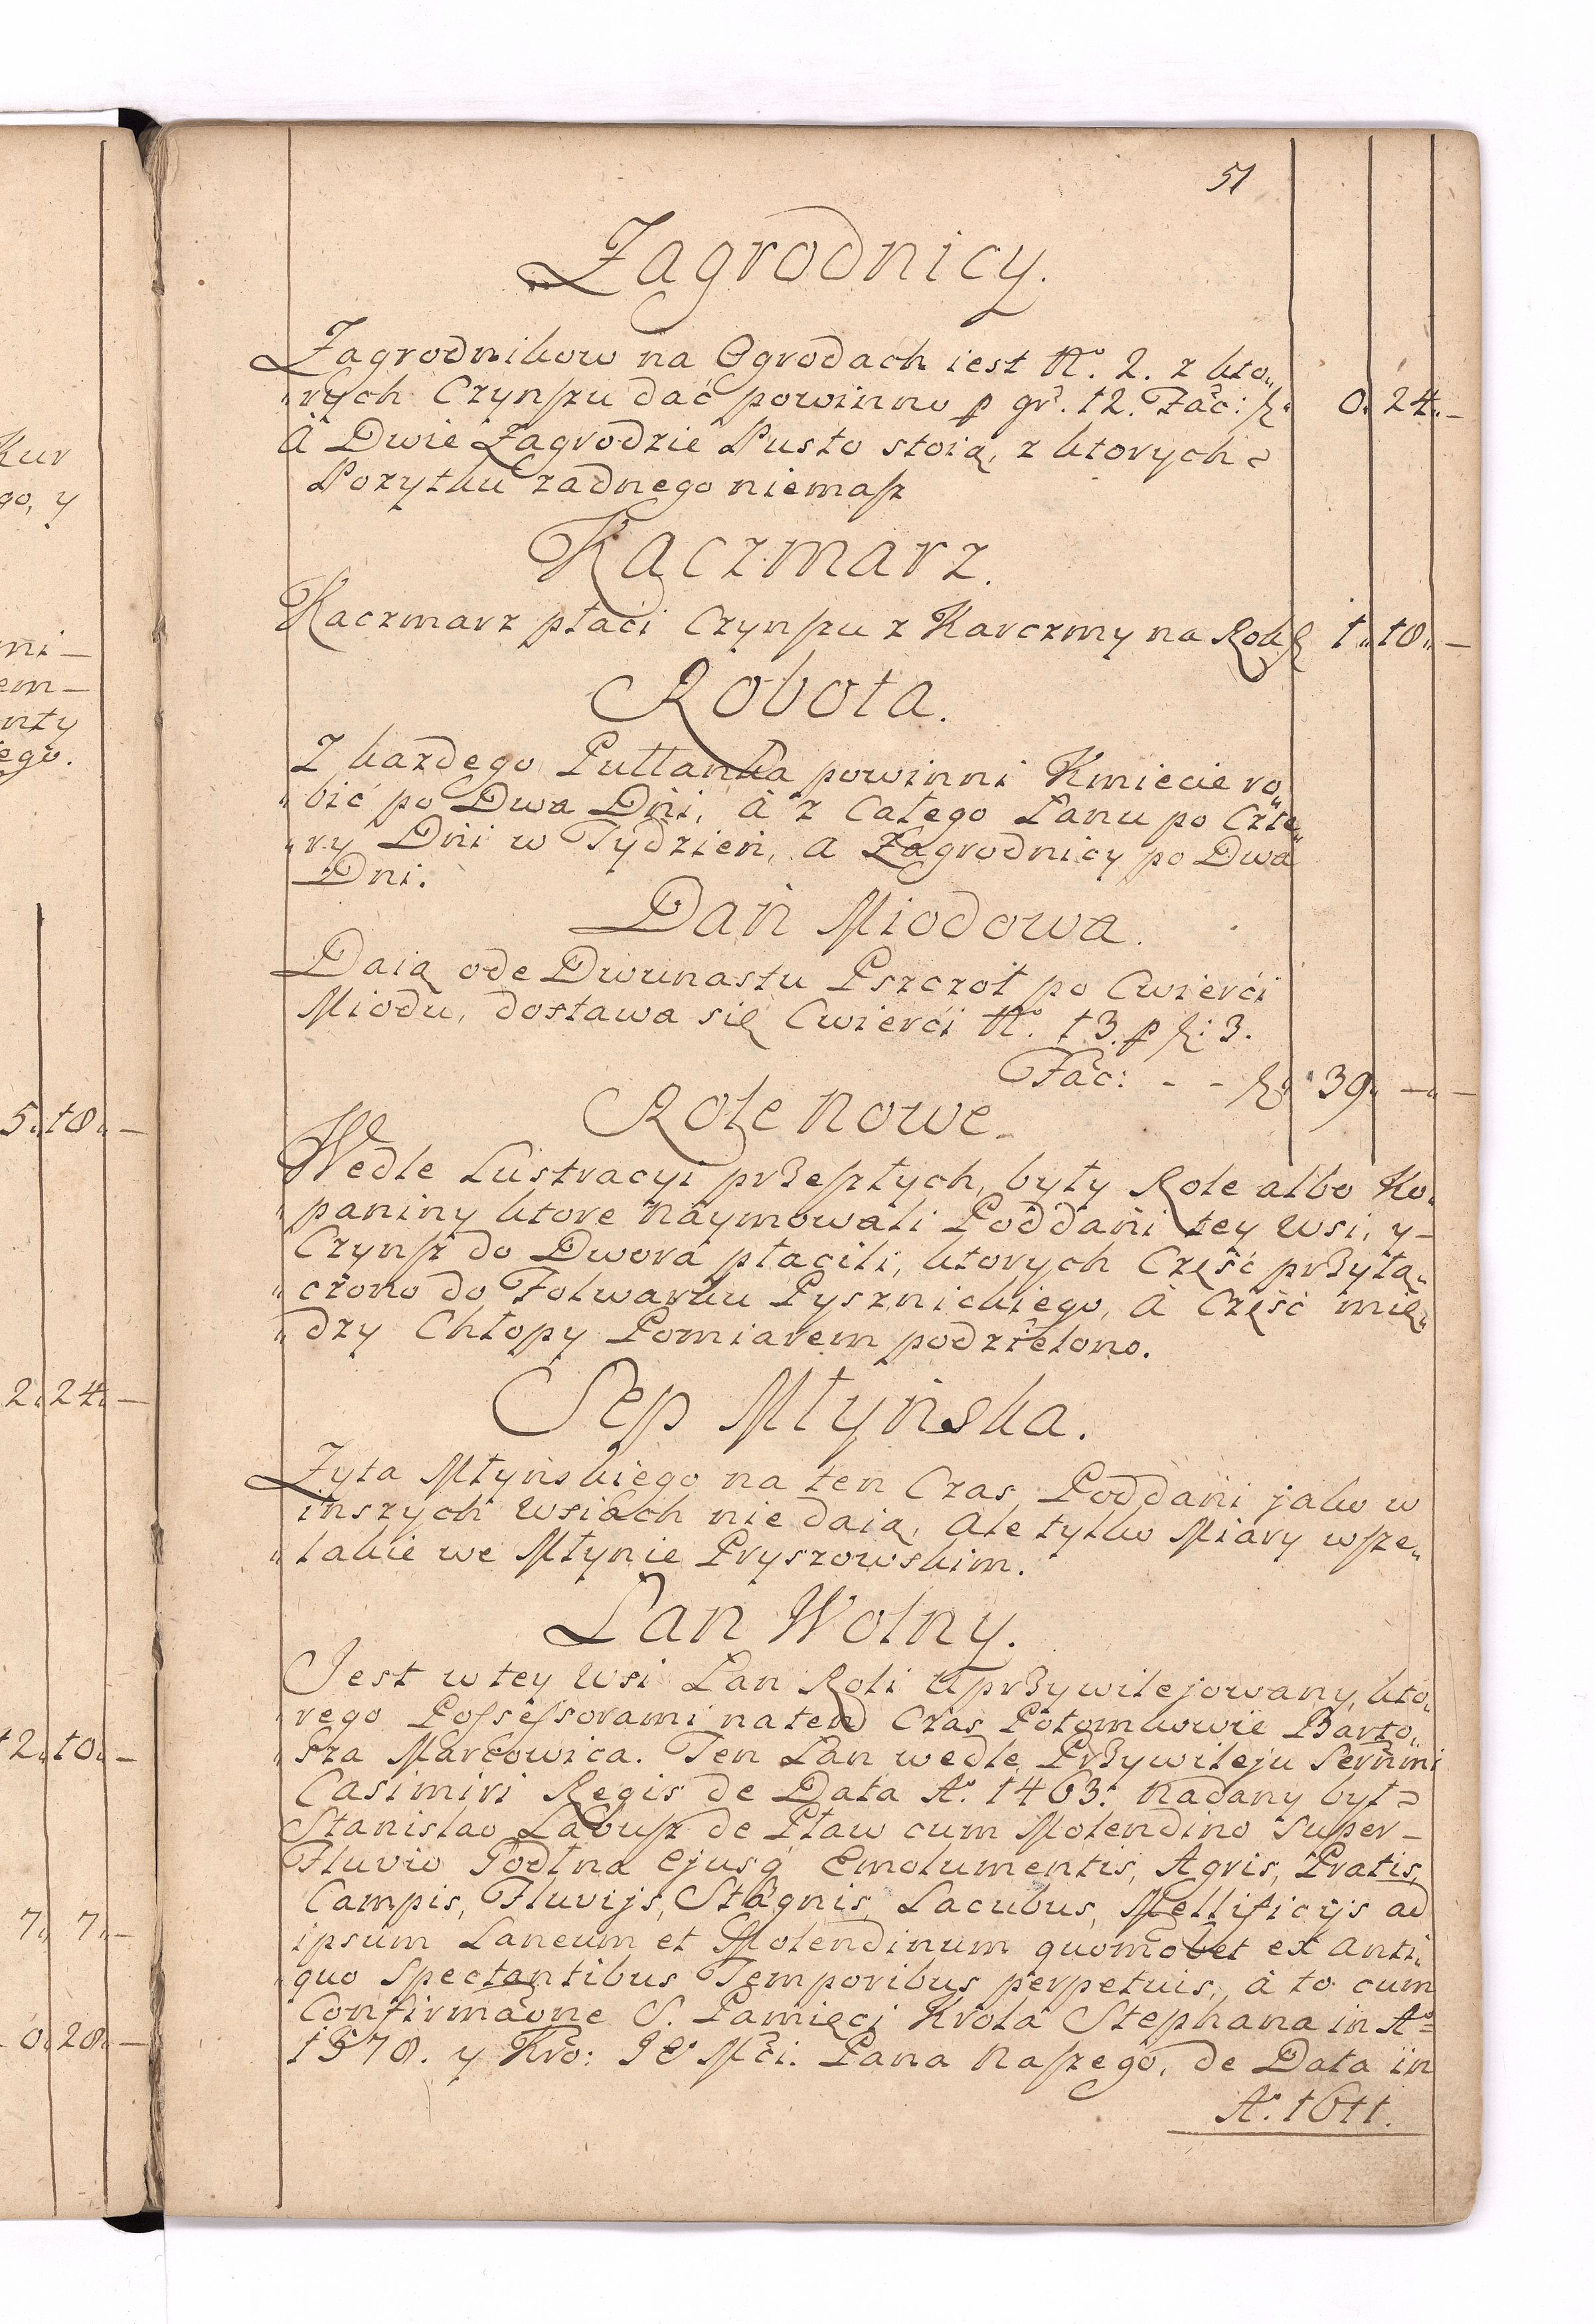 51
Zagrodnicy.
Zagrodnikow na Ogrodach iest No. 2. z kto„
„rych Czynszu dać powinno p gr. 12. Fac: fl. 0. 24. –
à Dwie Zagrodzie Pusto stoią, z ktorych
Pozytku zadnego niemasz
Kaczmarz.
Kaczmarz płaci Czynszu z Karczmy na Rok fl 1. 18. –
Robota.
Z kazdego Pułłanka powinni Kmiecie ro„
„bić po Dwa Dni, à z Całego Łanu po Czte„
„ry Dni w Tydzień, a Zagrodnicy po Dwa
Dni.
Dań Miodowa.
Daią ode Dwunastu Pszczoł po Cwierci
Miodu, dostawa się Cwierci No. 13. p fl: 3.
Fac: - - fl. 39. – –
Role Nowe.
Wedle Lustracyi przeszłych, były Role albo Ko„
„paniny ktore naymowali Poddani tey Wsi, y
Czynsz do Dwora płacili, ktorych Część przyłą„
„czono do Folwarku Pysznickiego, à Część mię„
„dzy Chłopy Pomiarem podzielono.
Sep Młyńska.
Zyta Młyńskiego na ten Czas Poddani jako w
inszych Wsiach nie daią, Ale tylko Miary wsze„
„lakie we Młynie Pryszowskim.
Łan Wolny.
Jest w tey Wsi Łan Roli uprzywilejowany, kto„
„rego Possessorami na ten Czas Potomkowie Barto„
„sza Marcowica. Ten Łan wedle Przywileju Serñmi
Casimiri Regis de Data Ao. 1463. Nadany był
Stanislao Łabusz de Pław cum Molendino super
Fluvio Podłna Ejusq́ Emolumentis, Agris, Pratis,
Campis, Fluvijs, Stagnis, Lacubus, Mellificijs ad
ipsum Laneum et Molendinum quomolet ex Anti„
„quo Spectantibus Temporibus perpetuis, à to cum
Confirmaone S. Pamięci Krola Stephana in Ao
1578. y Kro: JE Mci. Pana Naszego, de Data in
Ao. 1611.
Kur
go, y
mi –
em –
nty
iego.
5. 18. –
2. 24. –
12. 10. –
7. 7. –
0. 28. –